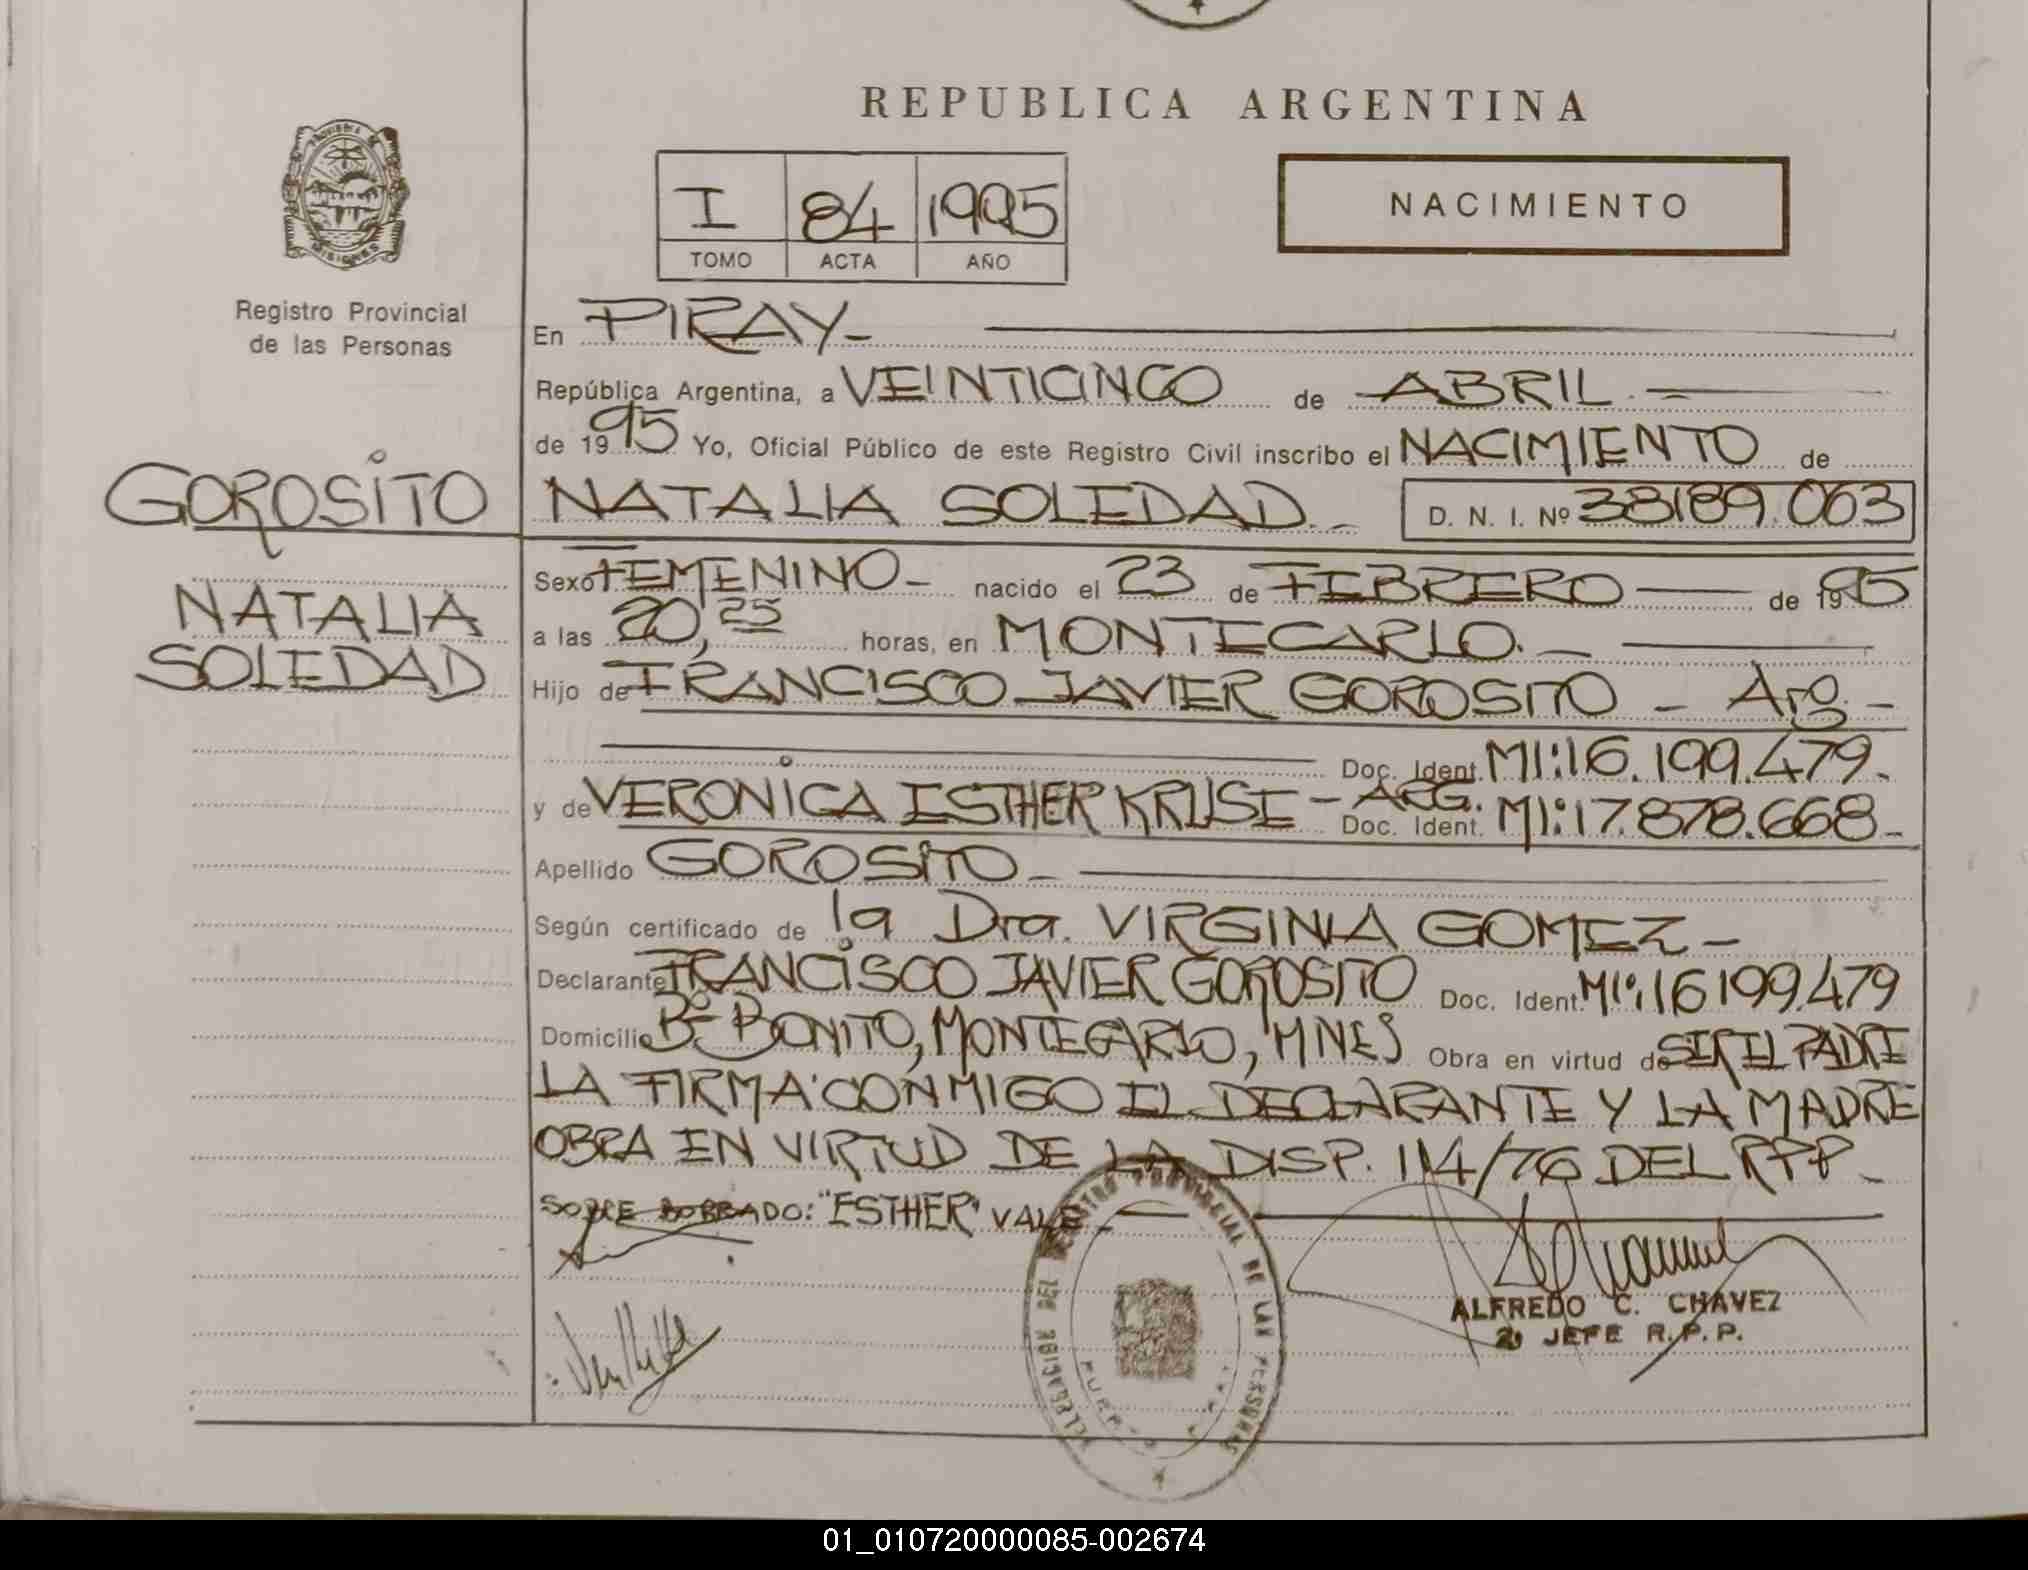 REPUBLICA ARGENTINA
I 84 1995
TOMO ACTA AÑO
NACIMIENTO
PROVINCIA DE
MISIONES
Registro Provincial
de las Personas
GOROSITO
NATALIA
SOLEDAD
En PIRAY-
República Argentina, a VEINTICINCO de ABRIL.-
de 1995 Yo, Oficial Público de este Registro Civil inscribo el NACIMIENTO de
NATALIA SOLEDAD.- D. N. I. Nº 38189.063
Sexo FEMENINO- nacido el 23 de FEBRERO de 1995
a las 20,25 horas, en MONTECARLO.-
Hijo de FRANCISCO JAVIER GOROSITO - Arg.-
Doc. Ident. MI:16.199.479.
y de VERONICA ESTHER KRUSE - ARG. Doc. Ident. MI:17.878.668-
Apellido GOROSITO-
Según certificado de la Dra. VIRGINIA GOMEZ-
Declarante FRANCISCO JAVIER GOROSITO Doc. Ident. MI:16199.479
Domicilio Bº BONITO, MONTECARLO, MNES Obra en virtud de SER EL PADRE
LA FIRMA CONMIGO EL DECLARANTE Y LA MADRE
OBRA EN VIRTUD DE LA DISP. 114/76 DEL RPP-
SOBRE BORRADO: "ESTHER" VALE-
REGISTRO PROVINCIAL DE LAS PERSONAS
ALFREDO C. CHAVEZ
2º JEFE R.P.P.
01_010720000085-002674